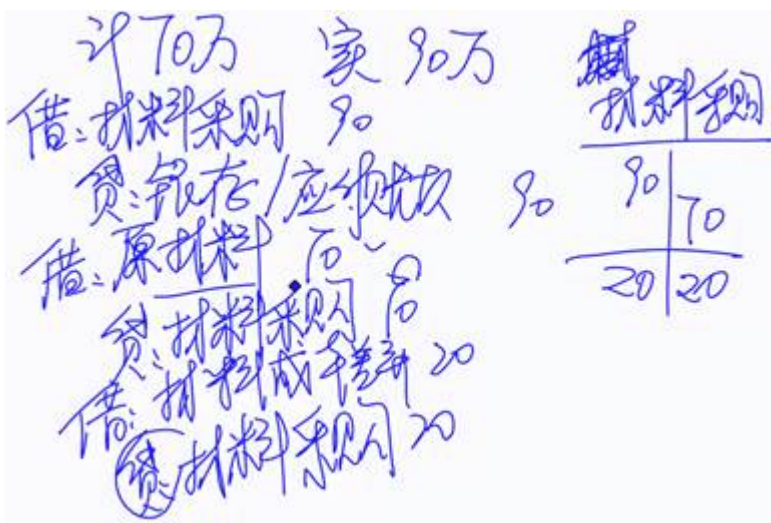 计70万 实90万
借:材料采购 90
贷:银存/应付账款 90
借:原材料 70
贷:材料采购 70
借:材料成本差异 20
贷:材料采购 20
材料采购
90
70
20 20